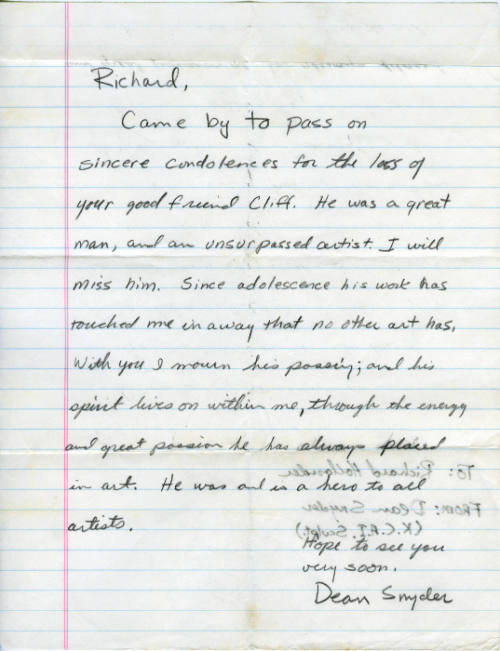 Richard,
Came by to pass on
sincere condolences for the loss of
your good friend Cliff. He was a great
man, and an unsurpassed artist. I will
miss him. Since adolescence his work has
touched me in a way that no other art has.
With you I mourn his passing; and his
spirit lives on within me, through the energy
and great passion he has always placed
in art. He was and is a hero to all
artists.
Hope to see you
very soon.
Dean Snyder
To: Richard
From: Dean Snyder
(K.C.A.I. Sculpt.)